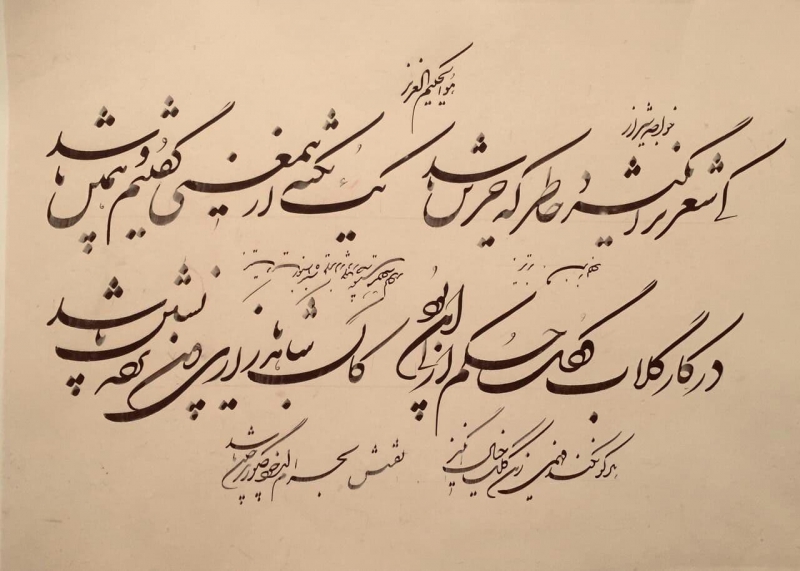 هوالحکیم العزیز
خواجه شیراز
کی شعر تر انگیزد خاطر که حزین باشد یک نکته از این معنی گفتیم و همین باشد
در کار گلاب و گل حکم ازلی این بود کاین شاهد بازاری وان پرده نشین باشد
هر کو نکند فهمی زین کلک خیال انگیز نقشش بحرام ار خود صورتگر چین باشد